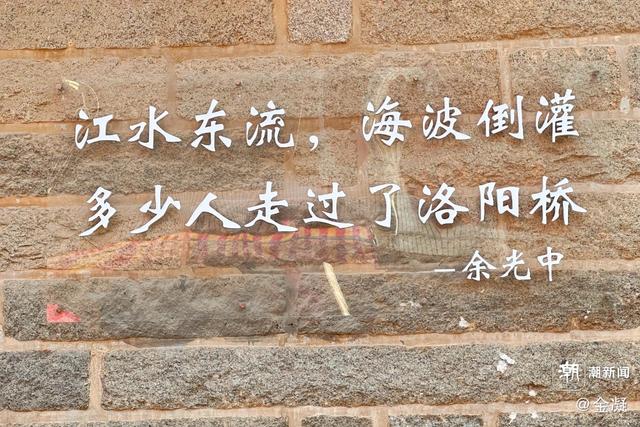 江水东流，海波倒灌
多少人走过了洛阳桥
—余光中
潮 潮新闻
@金凝